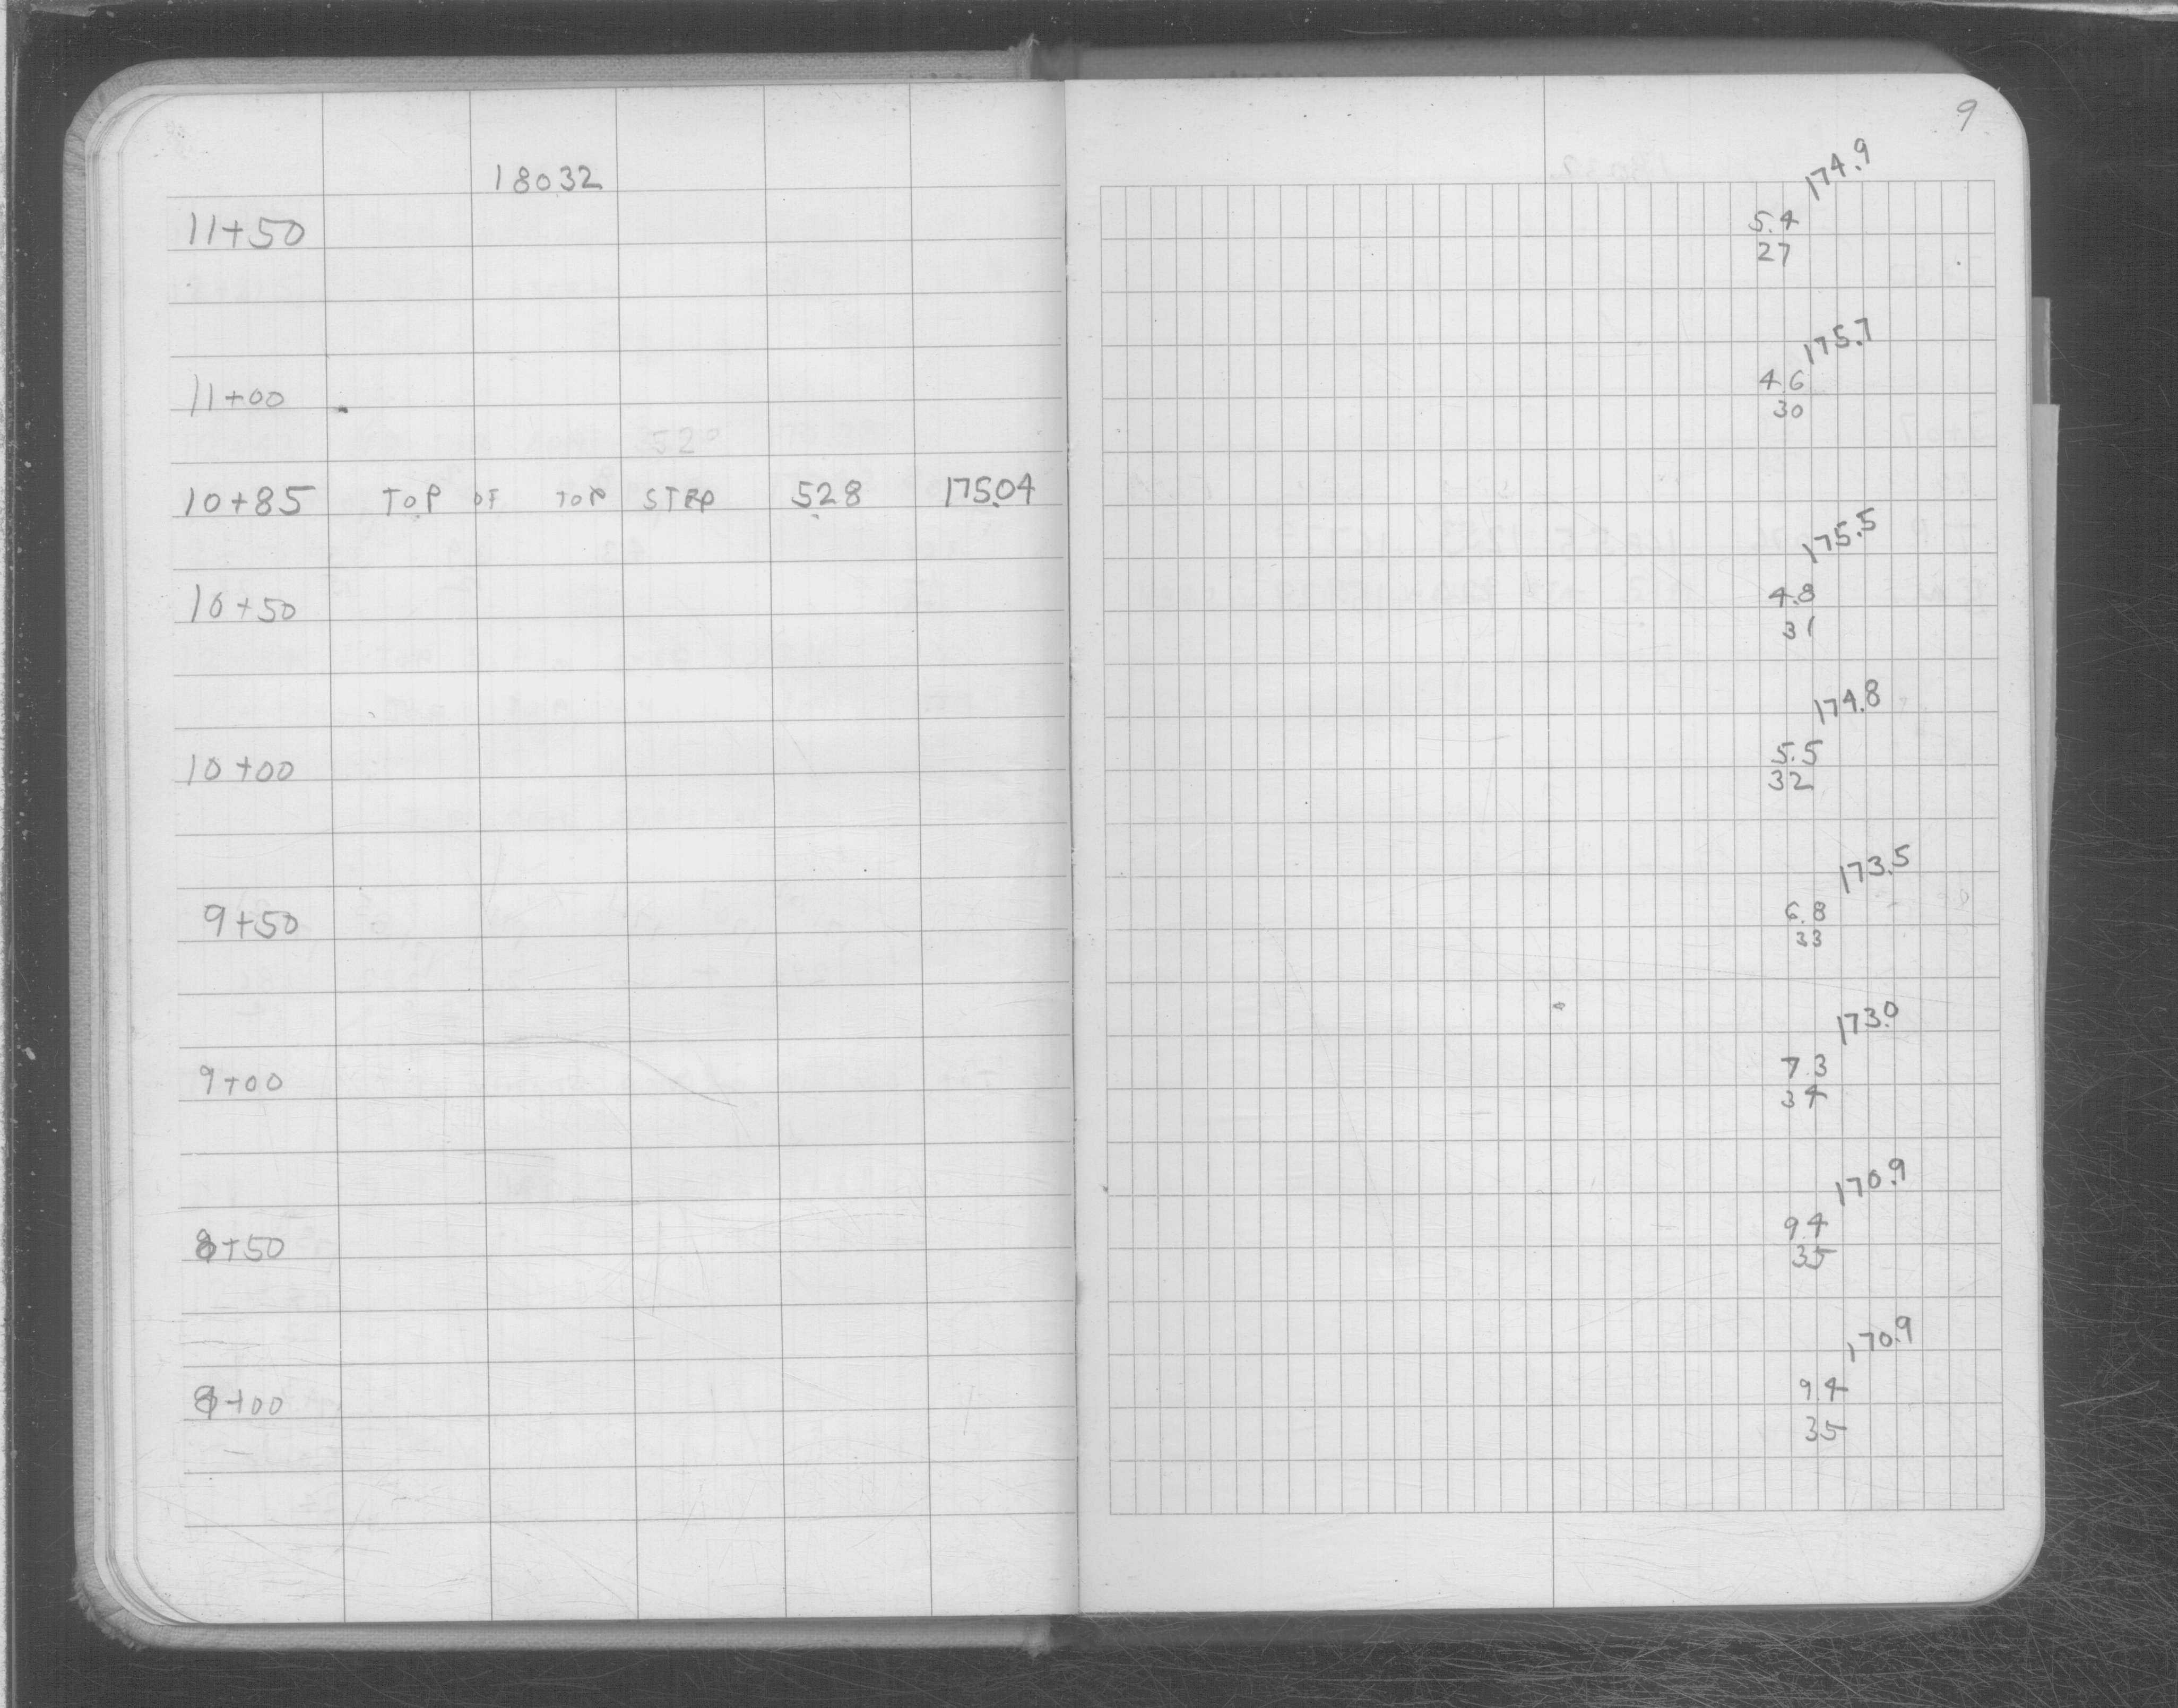 18032
11+50
11+00
10+85 TOP OF TOP STEP 5.28 175.04
10+50
10+00
9+50
9+00
8+50
8+00
9
174.9
5.4
27
175.7
4.6
30
175.5
4.8
31
174.8
5.5
32
173.5
6.8
33
173.0
7.3
34
170.9
9.4
35
170.9
9.4
35